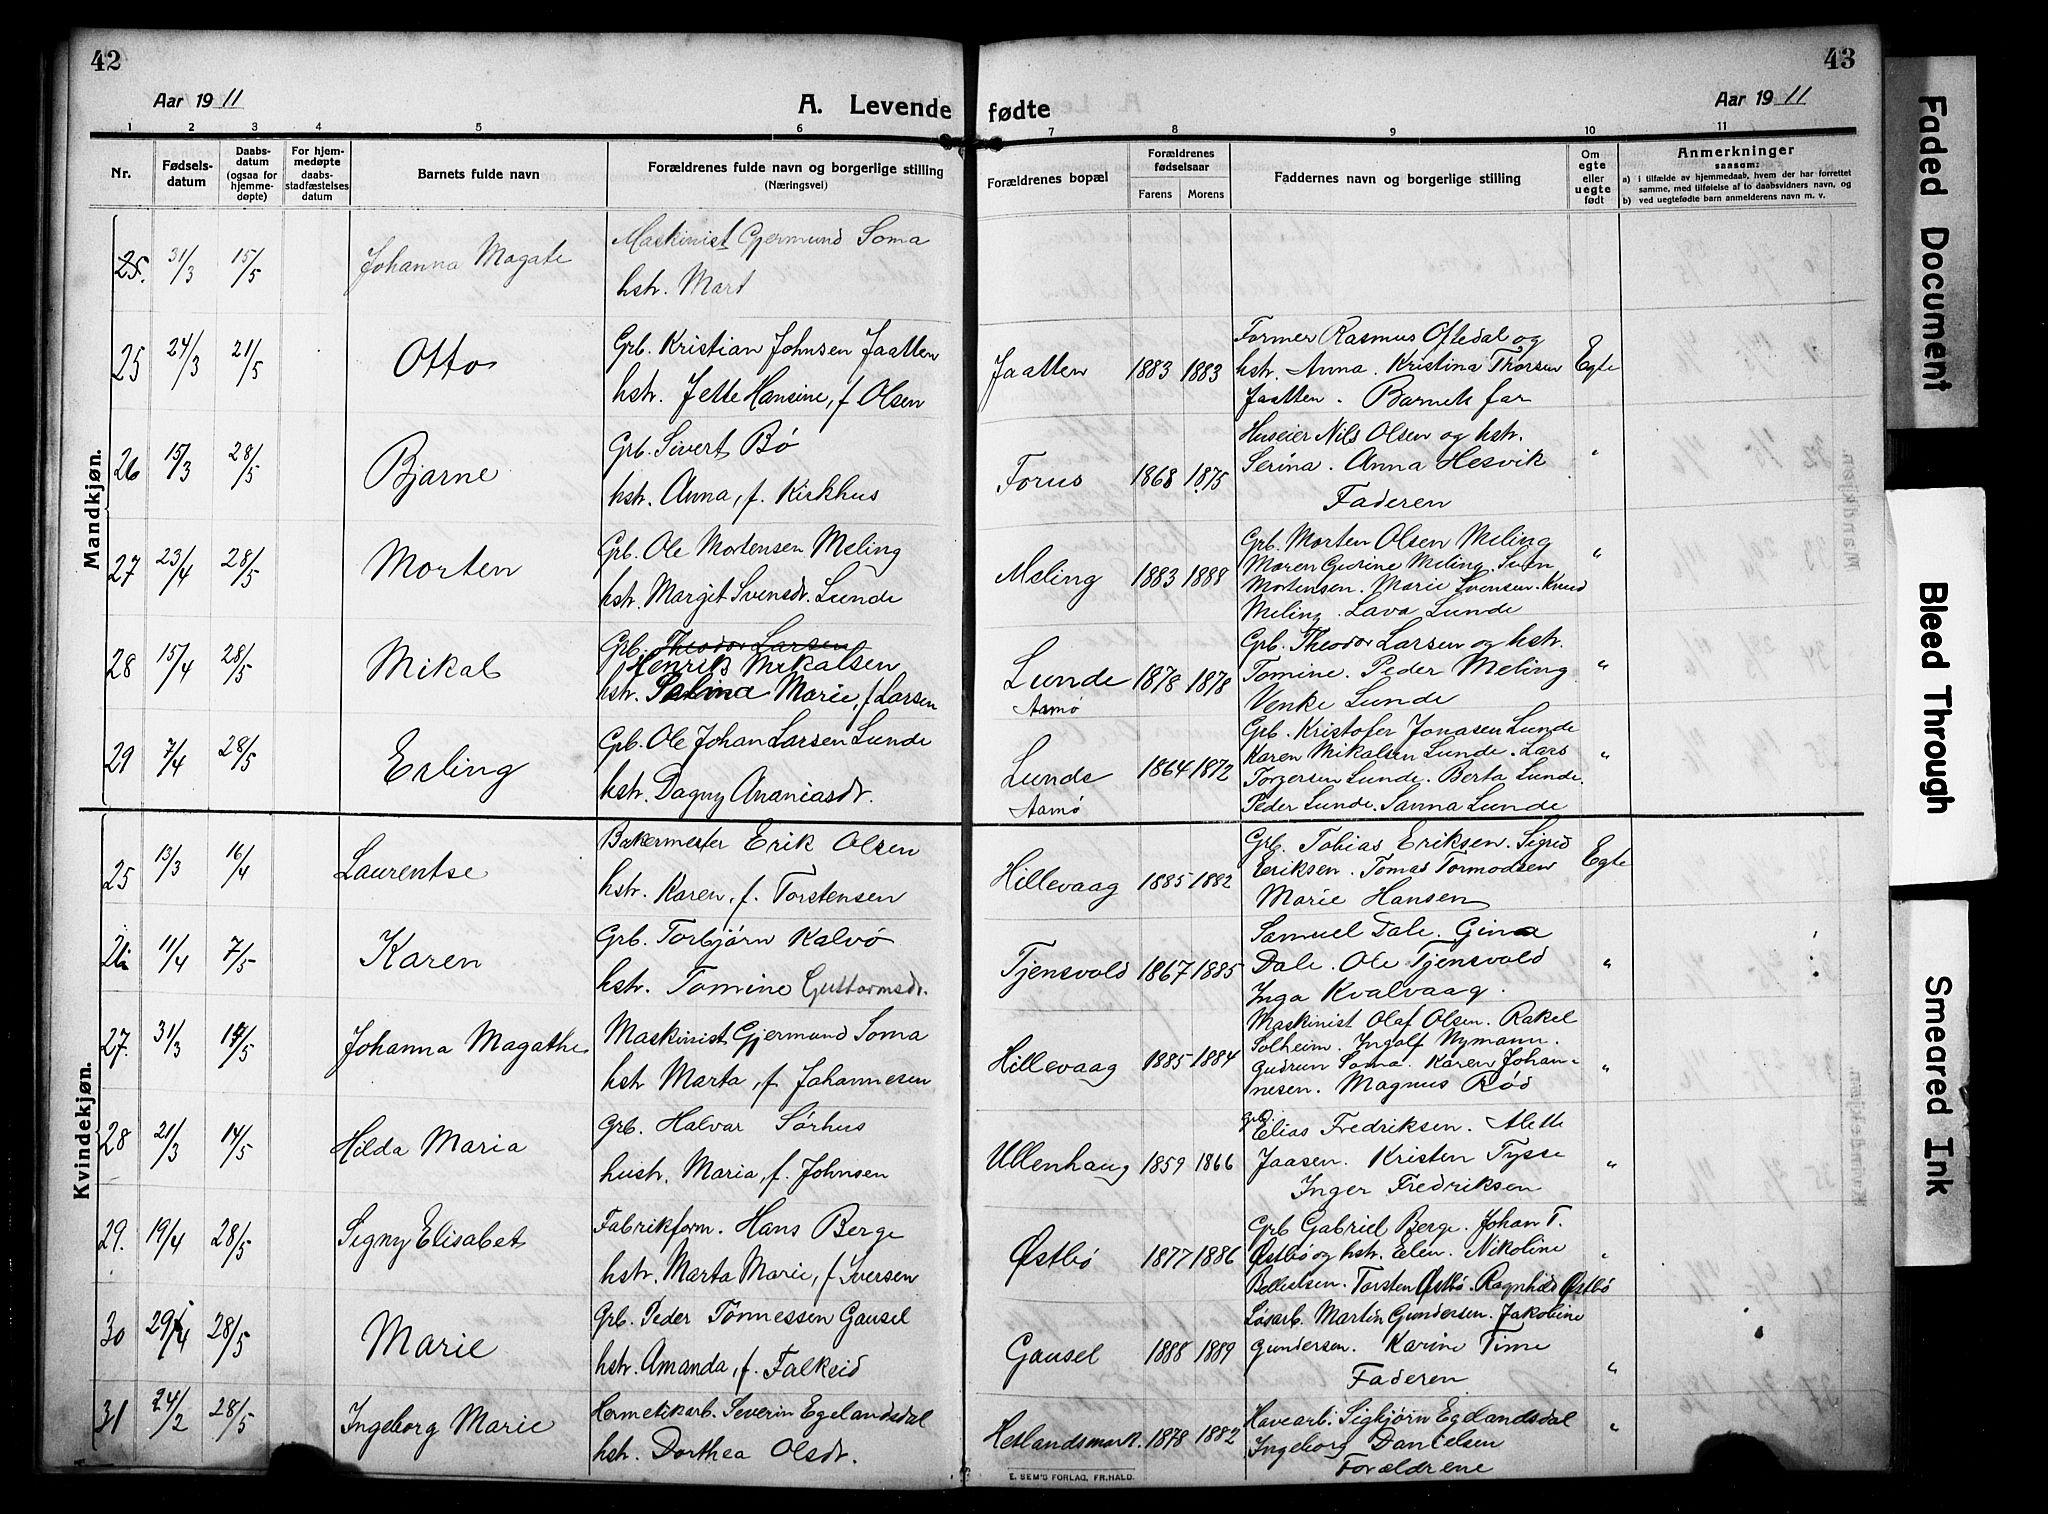 42
Aar 1911
A. Levende
1 2 3 4 5 6
Nr.
Fødsels-
datum
Daabs-
datum
(ogsaa for
hjemme-
døpte)
For hjem-
medøpte
daabs-
stadfæstelses
datum
Barnets fulde navn
Forældrenes fulde navn og borgerlige stilling
(Næringsvei)
Mandkjøn.
25. 31/3 15/5 Johanna Magate Maskinist Gjermund Soma
hstr. Mart
25 24/3 21/5 Otto Grb. Kristian Johnsen Jaatten
hstr. Jette Hansine, f Olsen
26 15/3 28/5 Bjarne Grb. Sivert Bø
hstr. Anna, f. Kirkhus
27 23/4 28/5 Morten Grb. Ole Mortensen Meling
hstr. Margit Svensdr. Lunde
28 15/4 28/5 Mikal Grb. Theodor Larsen
Henrik Mikalsen
hstr. Marie, f Larsen
29 7/4 28/5 Erling Grb. Ole Johan Larsen Lunde
hstr. Dagny Ananiasdr.
Kvindekjøn.
25 13/3 16/4 Laurentse Bakermester Erik Olsen
hstr. Karen, f. Torstensen
26 11/4 7/5 Karen Grb. Torbjørn Kalvø
hstr. Tomine Guttormsdr.
27. 31/3 14/5 Johanna Magathe Maskinist Gjermund Soma
hstr Marta, f. Johannesen
28 21/3 14/5 Hilda Maria Grb. Halvar Sørhus
hustr. Maria, f. Johnsen
29. 19/4 28/5 Signy Elisabet Fabrikform. Hans Berge
hstr. Marta Marie, f. Iversen
30 29/4 28/5 Marie Grb. Peder Tønnessen Gausel
hstr. Amanda, f. Falkeid
31 24/2 28/5 Ingeborg Marie Hermetikarb. Severin Egelandsdal
hstr. Dorthea Olsdr.
43
fødte
Aar 1911
7 8 9 10 11
Forældrenes bopæl
Forældrenes
fødselsaar
Farens Morens
Faddernes navn og borgerlige stilling
Om
egte
eller
uegte
født
Anmerkninger
saasom:
a) i tilfælde av hjemmedaab, hvem der har forrettet
samme, med tilføielse af to daabsvidners navn, og
b) ved uegtefødte barn anmelderens navn m. v.
Former Rasmus Oftedal og
Jaatten 1883 1883 hstr. Anna. Kristina Thorsen Egte
Jaatten. Barnets far
Huseier Nils Olsen og hstr.
Forus 1868 1875 Serina. Anna Hesvik "
Faderen
Grb. Morten Olsen Meling "
Maren Gurine Meling. Sven
Meling 1883 1888 Mortensen. Marie Svensen. Knud
Meling. Lava Lunde
Grb. Theodor Larsen og hstr.
Lunde 1878 1878 Tomine. Peder Meling "
Aamø Venke Lunde
Grb. Kristofer Jonasen Lunde
Karen Mikalsen Lunde. Lars "
Lunde 1864 1872 Torgersen Lunde. Berta Lunde.
Aamø Peder Lunde. Sanna Lunde
Grb. Tobias Eriksen. Sigrid
Hillevaag 1885 1882 Eriksen. Tomas Tormodsen Egte
Marie Hansen
Samuel Dale. Gina
Tjensvold 1867 1885 Dale. Ole Tjensvold "
Inga Kvalvaag.
Maskinist Olaf Olsen. Rakel
Solheim. Ingolf Nymann.
Hillevaag 1885 1884 Gudrun Soma. Karen Johan- "
nesen. Magnus Rød
Grb. Elias Fredriksen. Alette
Ullenhaug 1859 1866 Jaasen. Kristen Tysse "
Inger Fredriksen
Grb Gabriel Berge. Johan T.
Østbø 1877 1886 Østbø og hstr. Elen. Nikoline "
Torsten Østbø. Ragnhild Østbø
Løsarb. Martin Gundersen. Jakobine
Gausel 1888 1889 Gundersen. Karine Time "
Faderen
Havearb. Sigbjørn Egelandsdal
Hetlandsmark. 1878 1882 Ingeborg Danielsen "
Forældrene
E. SEM'S FORLAG, FR.HALD.
Faded Document
Bleed Through
Smeared Ink